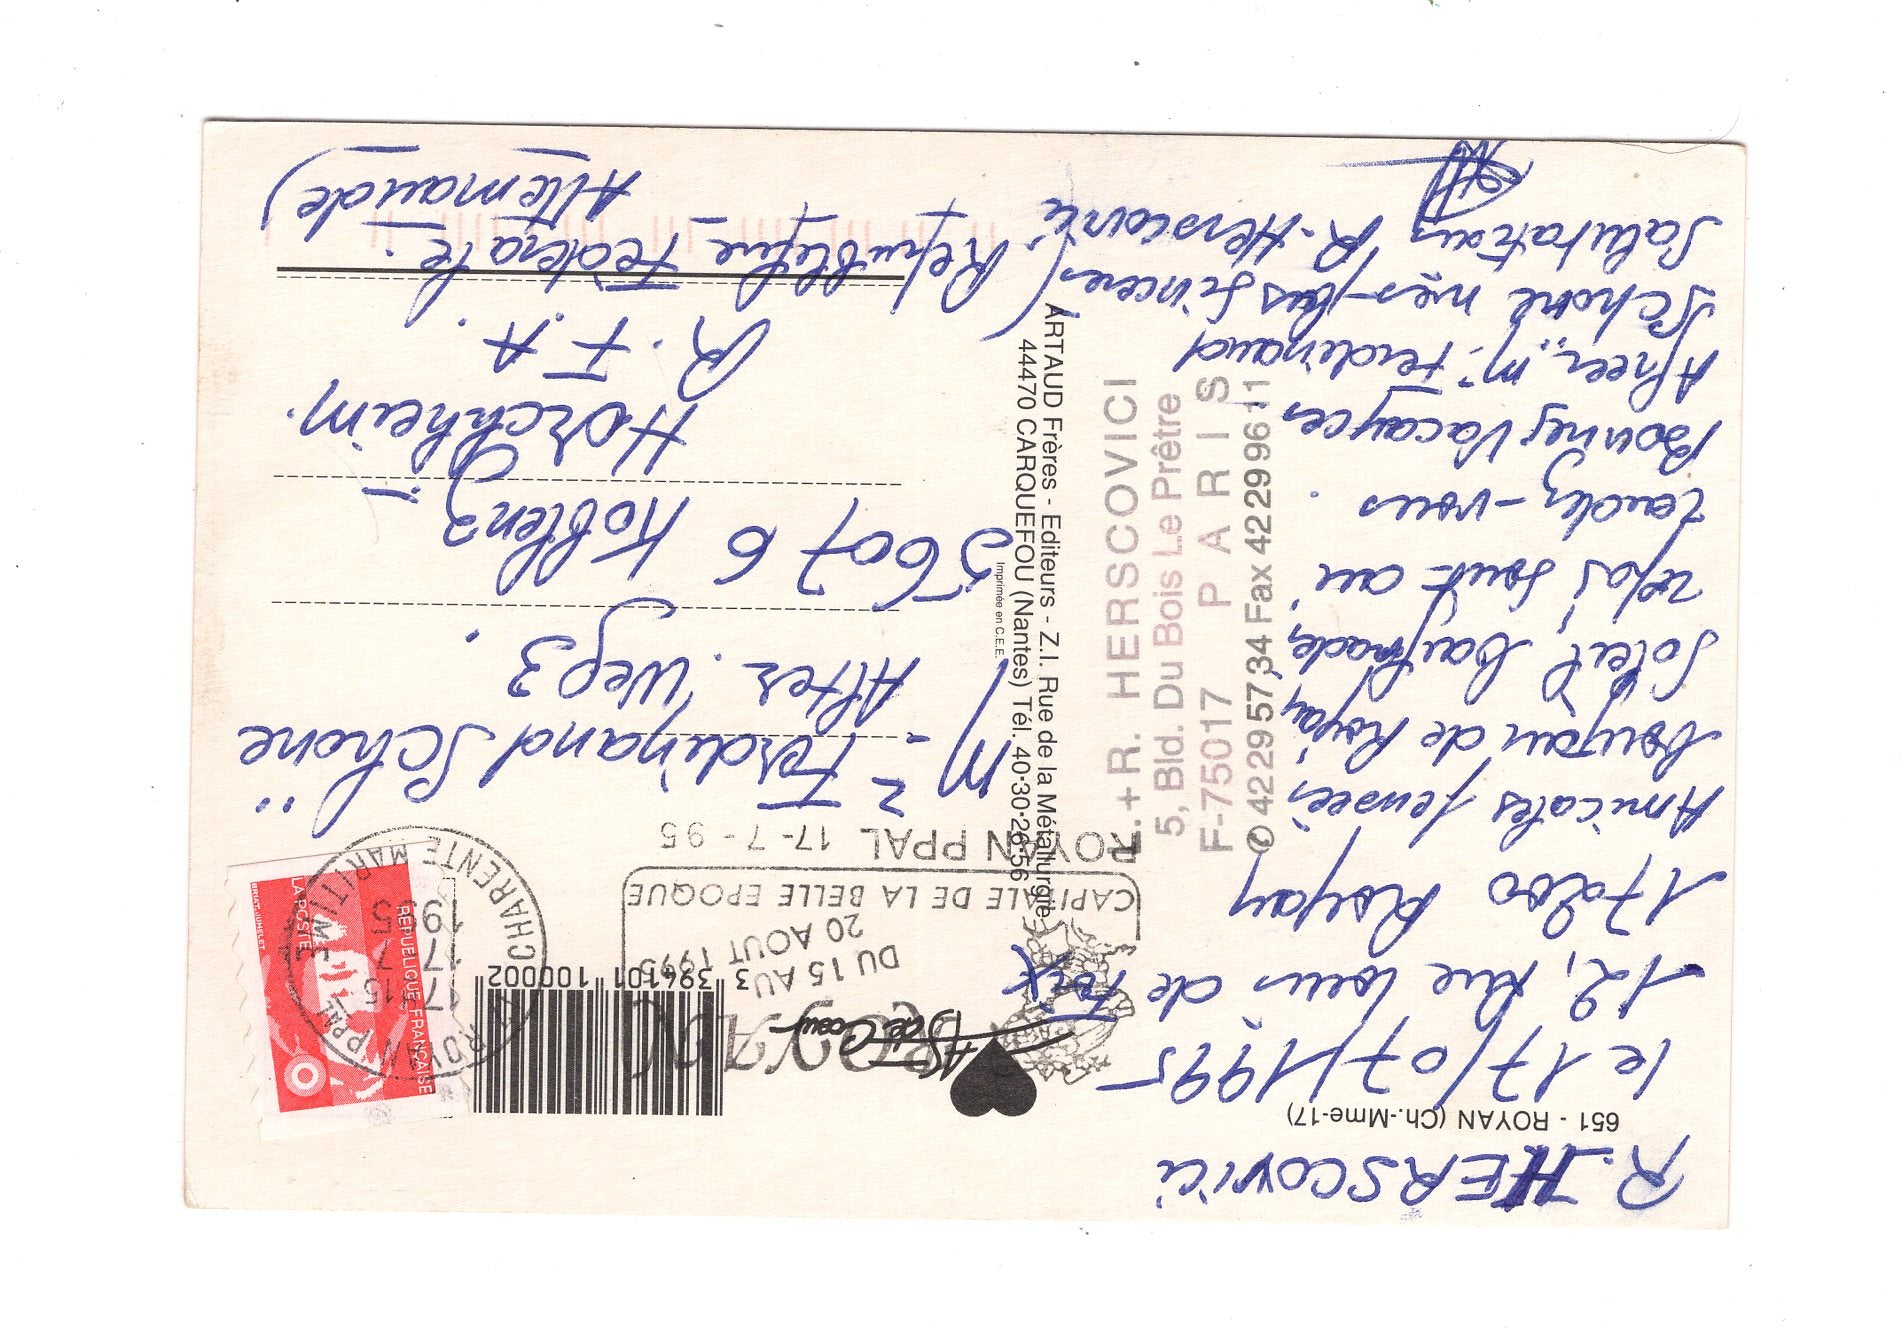 R. HERSCOVICI
651 - ROYAN (Ch.-Mme-17)
le 17/07/1995
12, Rue Louis de
17200 Royan
Amicales pensées
de Royan
Soleil, baignades,
repos sont au
rendez-vous.
Bonnes Vacances
Mr Ferdinand
Schöne mes plus sincères
Salutations R. Herscovici
L.+R. HERSCOVICI
5, Bld. Du Bois Le Prêtre
F-75017 PARIS
✆ 42 29 57 34 Fax 42 29 96 11
ARTAUD Frères - Editeurs - Z.I. Rue de la Métallurgie
44470 CARQUEFOU (Nantes) Tél. 40·30·26·56
Imprimée en C.E.E.
AS de Cœur
3 394101 100002
ROYAN
DU 15 AU
20 AOUT 1995
CAPITALE DE LA BELLE EPOQUE
ROYAN PPAL 17-7-95
ROYAN PPAL
17-15
17 7
1995
CHARENTE MARITIME
REPUBLIQUE FRANÇAISE
LA POSTE
BRIAT-JUMELET
Mr Ferdinand Schöne
Alter Weg 3.
56076 Koblenz -
Horchheim.
R.F.A.
(République Fédérale
Allemande)